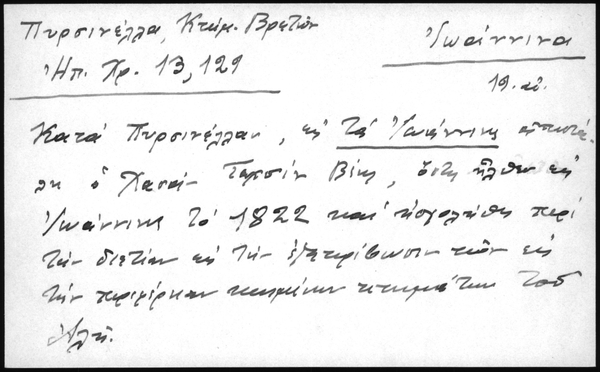 Πυρσινέλλα, Κτημ. Βρετιῶν
Ἠπ. Χρ. 13, 129
Ἰωάννινα
19. αἰ.
Κατὰ Πυρσινέλλαν, εἰς τὰ Ἰωάννινα ἀπεστά-
λη ὁ Χασὰν Ταχσὶν Βέης, ὅστις ἦλθεν εἰς
Ἰωάννινα τὸ 1822 καὶ ἠσχολήθη περὶ
τὴν διετίαν εἰς τὴν ἐξακρίβωσιν τῶν εἰς
τὴν περιφέρειαν κειμένων κτημάτων τοῦ
Ἀλῆ.